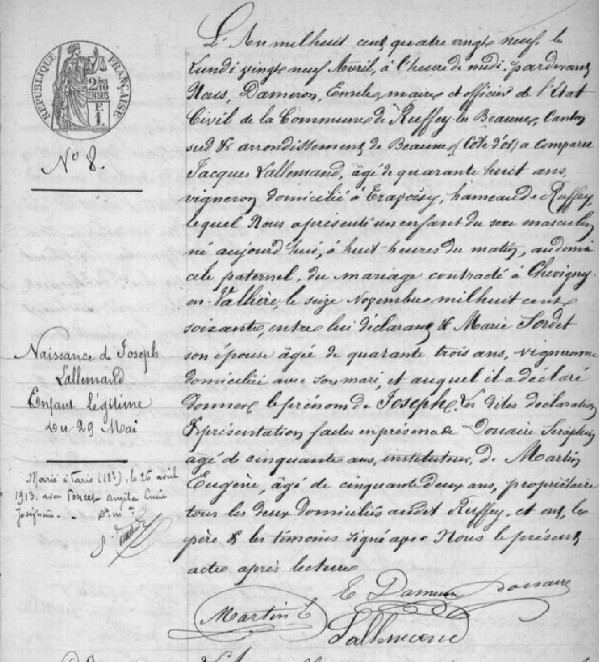 RÉPUBLIQUE FRANÇAISE
N° 8.
Naissance de Joseph
Lallemand
Enfant légitime
du 29 Mai
Marié à Paris (18e), le 26 avril
1913. avec
L'An mil huit cent quatre vingt neuf le
Lundi vingt neuf Avril, à l'heure de midi, pardevant
Nous, Dameron, Emile, maire et officier de l'Etat
Civil de la Commune de Ruffey-les-Beaune, Canton
sud & arrondissement de Beaune, Côte d'or, a comparu
Jacques Lallemand, âgé de quarante huit ans
vigneron domicilié à Travoisy, hameau de Ruffey
lequel Nous a présenté un enfant du sexe masculin
né aujourd'hui, à huit heures du matin, au domi
cile paternel, du mariage contracté à Chevigny
en-Vallière, le seize Novembre mil huit cent
soixante, entre lui déclarant & Marie Sordet
son épouse âgée de quarante trois ans, vigneronne
domiciliée avec son mari, et auquel il a déclaré
donner le prénom de Joseph. Les dites déclaration
& présentation faites en présence de Douaire Séraphin
agé de cinquante ans, instituteur, de Martin
Eugène, âgé de cinquante deux ans, propriétaire
tous les deux domiciliés audit Ruffey, et ont, les
père & les témoins signé avec Nous le présent
acte après lecture
E Dameron
Douaire
Martin E
Lallemand